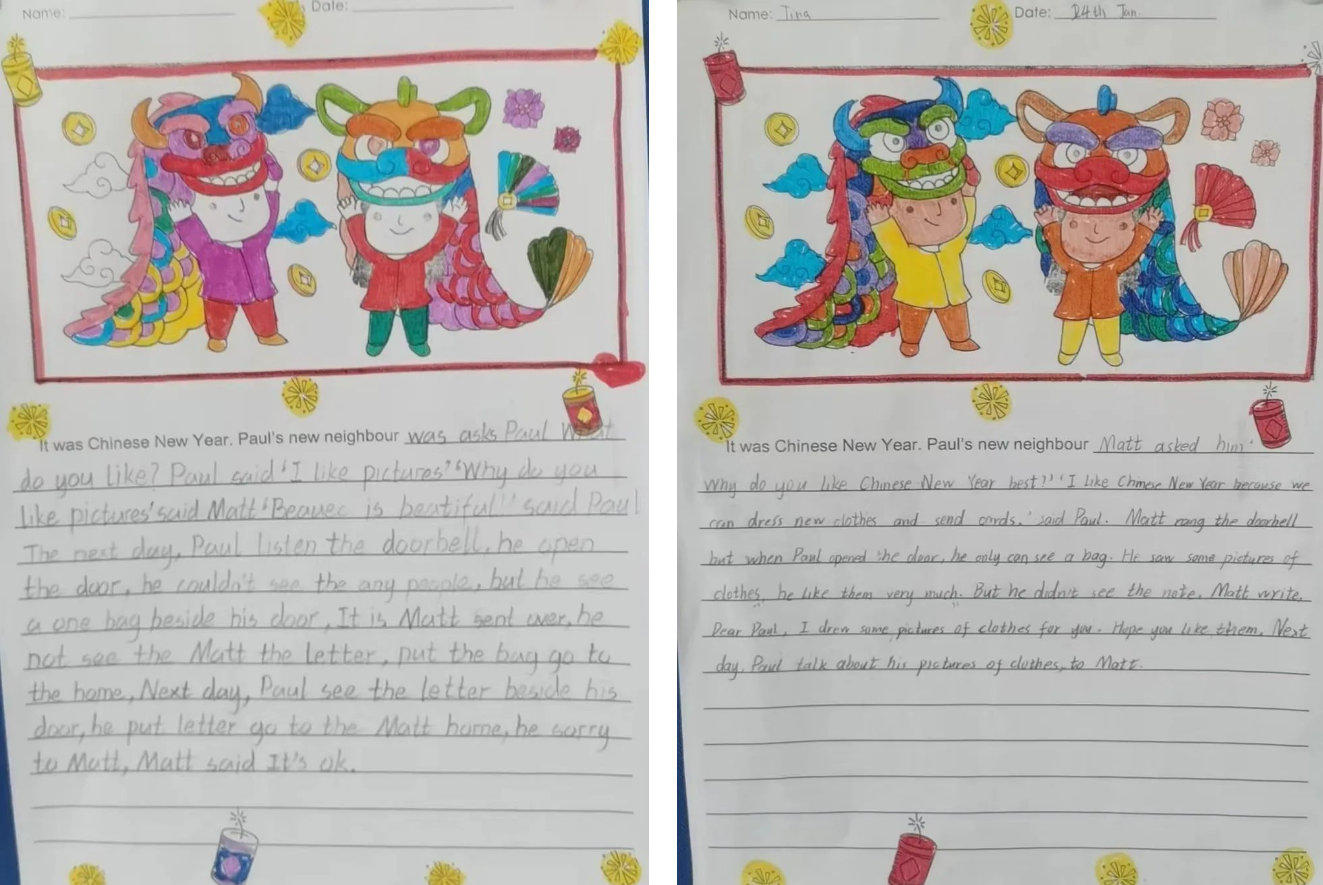 Name:
Date:
It was Chinese New Year. Paul's new neighbour was asks Paul What
do you like? Paul said 'I like pictures' 'Why do you
like pictures' said Matt 'Beauec is beatiful'' said Paul
The next day, Paul listen the doorbell, he open
the door, he couldn't see the any people, but he see
a one bag beside his door, It is Matt sent over, he
not see the Matt the letter, put the bag go to
the home, Next day, Paul see the letter beside his
door, he put letter go to the Matt home, he sorry
to Matt, Matt said It's ok.
Name: Tina
Date: 24th Jan.
It was Chinese New Year. Paul's new neighbour Matt asked him'
Why do you like Chinese New Year best?' 'I like Chinese New Year because we
can dress new clothes and send cards.' said Paul. Matt rang the doorbell
but when Paul opened the door, he only can see a bag. He saw some pictures of
clothes, he like them very much. But he didn't see the note. Matt write.
Dear Paul, I drew some pictures of clothes for you. Hope you like them. Next
day, Paul talk about his pictures of clothes, to Matt.